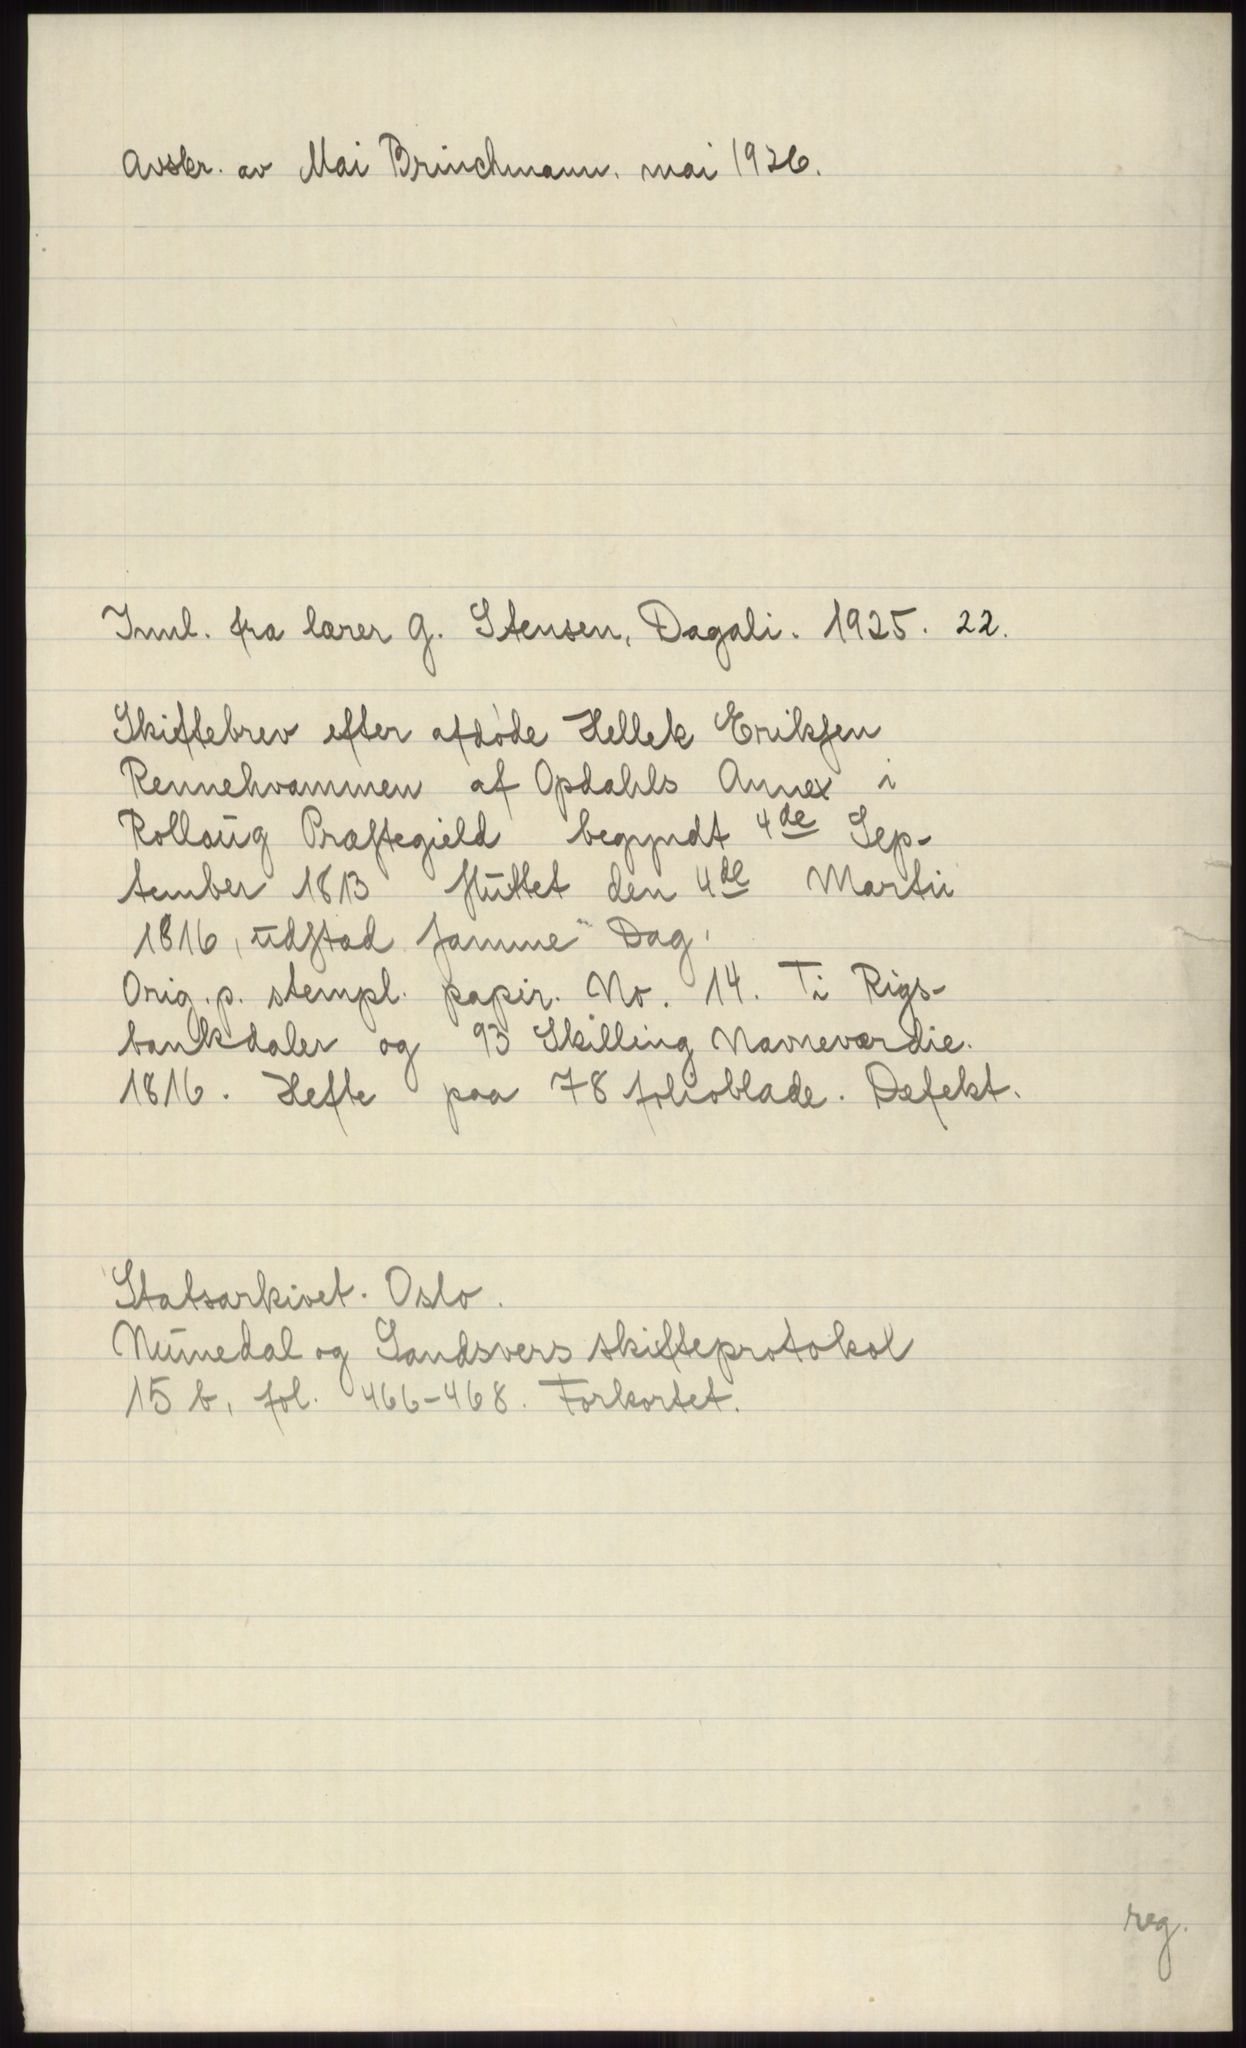 Avskr. av Mai Brinchmann. mai 1926.
Innl. fra lærer G. Stensen, Dagali. 1925. 22.
Skiftebrev efter afdøde Hellek Erikſen
Rennehvammen af Opdahls Annex i
Rollaŭg Præſtegield begyndt 4de Sep-
tember 1813 ſlŭttet den 4de Martii
1816, ŭdſtæd ſamme Dag.
Orig. p. stempl. papir. No. 14. Ti Rigs-
bankdaler og 93 Skilling Navneværdie.
1816. Hefte paa 78 folioblade. Defekt.
Statsarkivet. Oslo.
Nŭmedal og Sandsvers skifteprotokol
15 b, fol. 466-468. Forkortet.
reg.